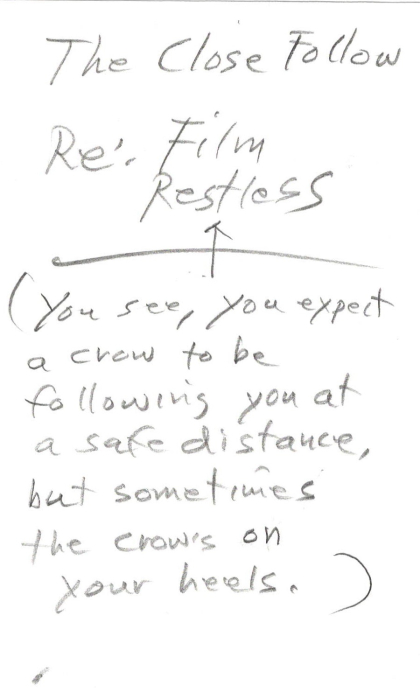 The Close Follow
Re: Film
Restless
(You see, you expect
a crow to be
following you at
a safe distance,
but sometimes
the crow's on
your heels.)